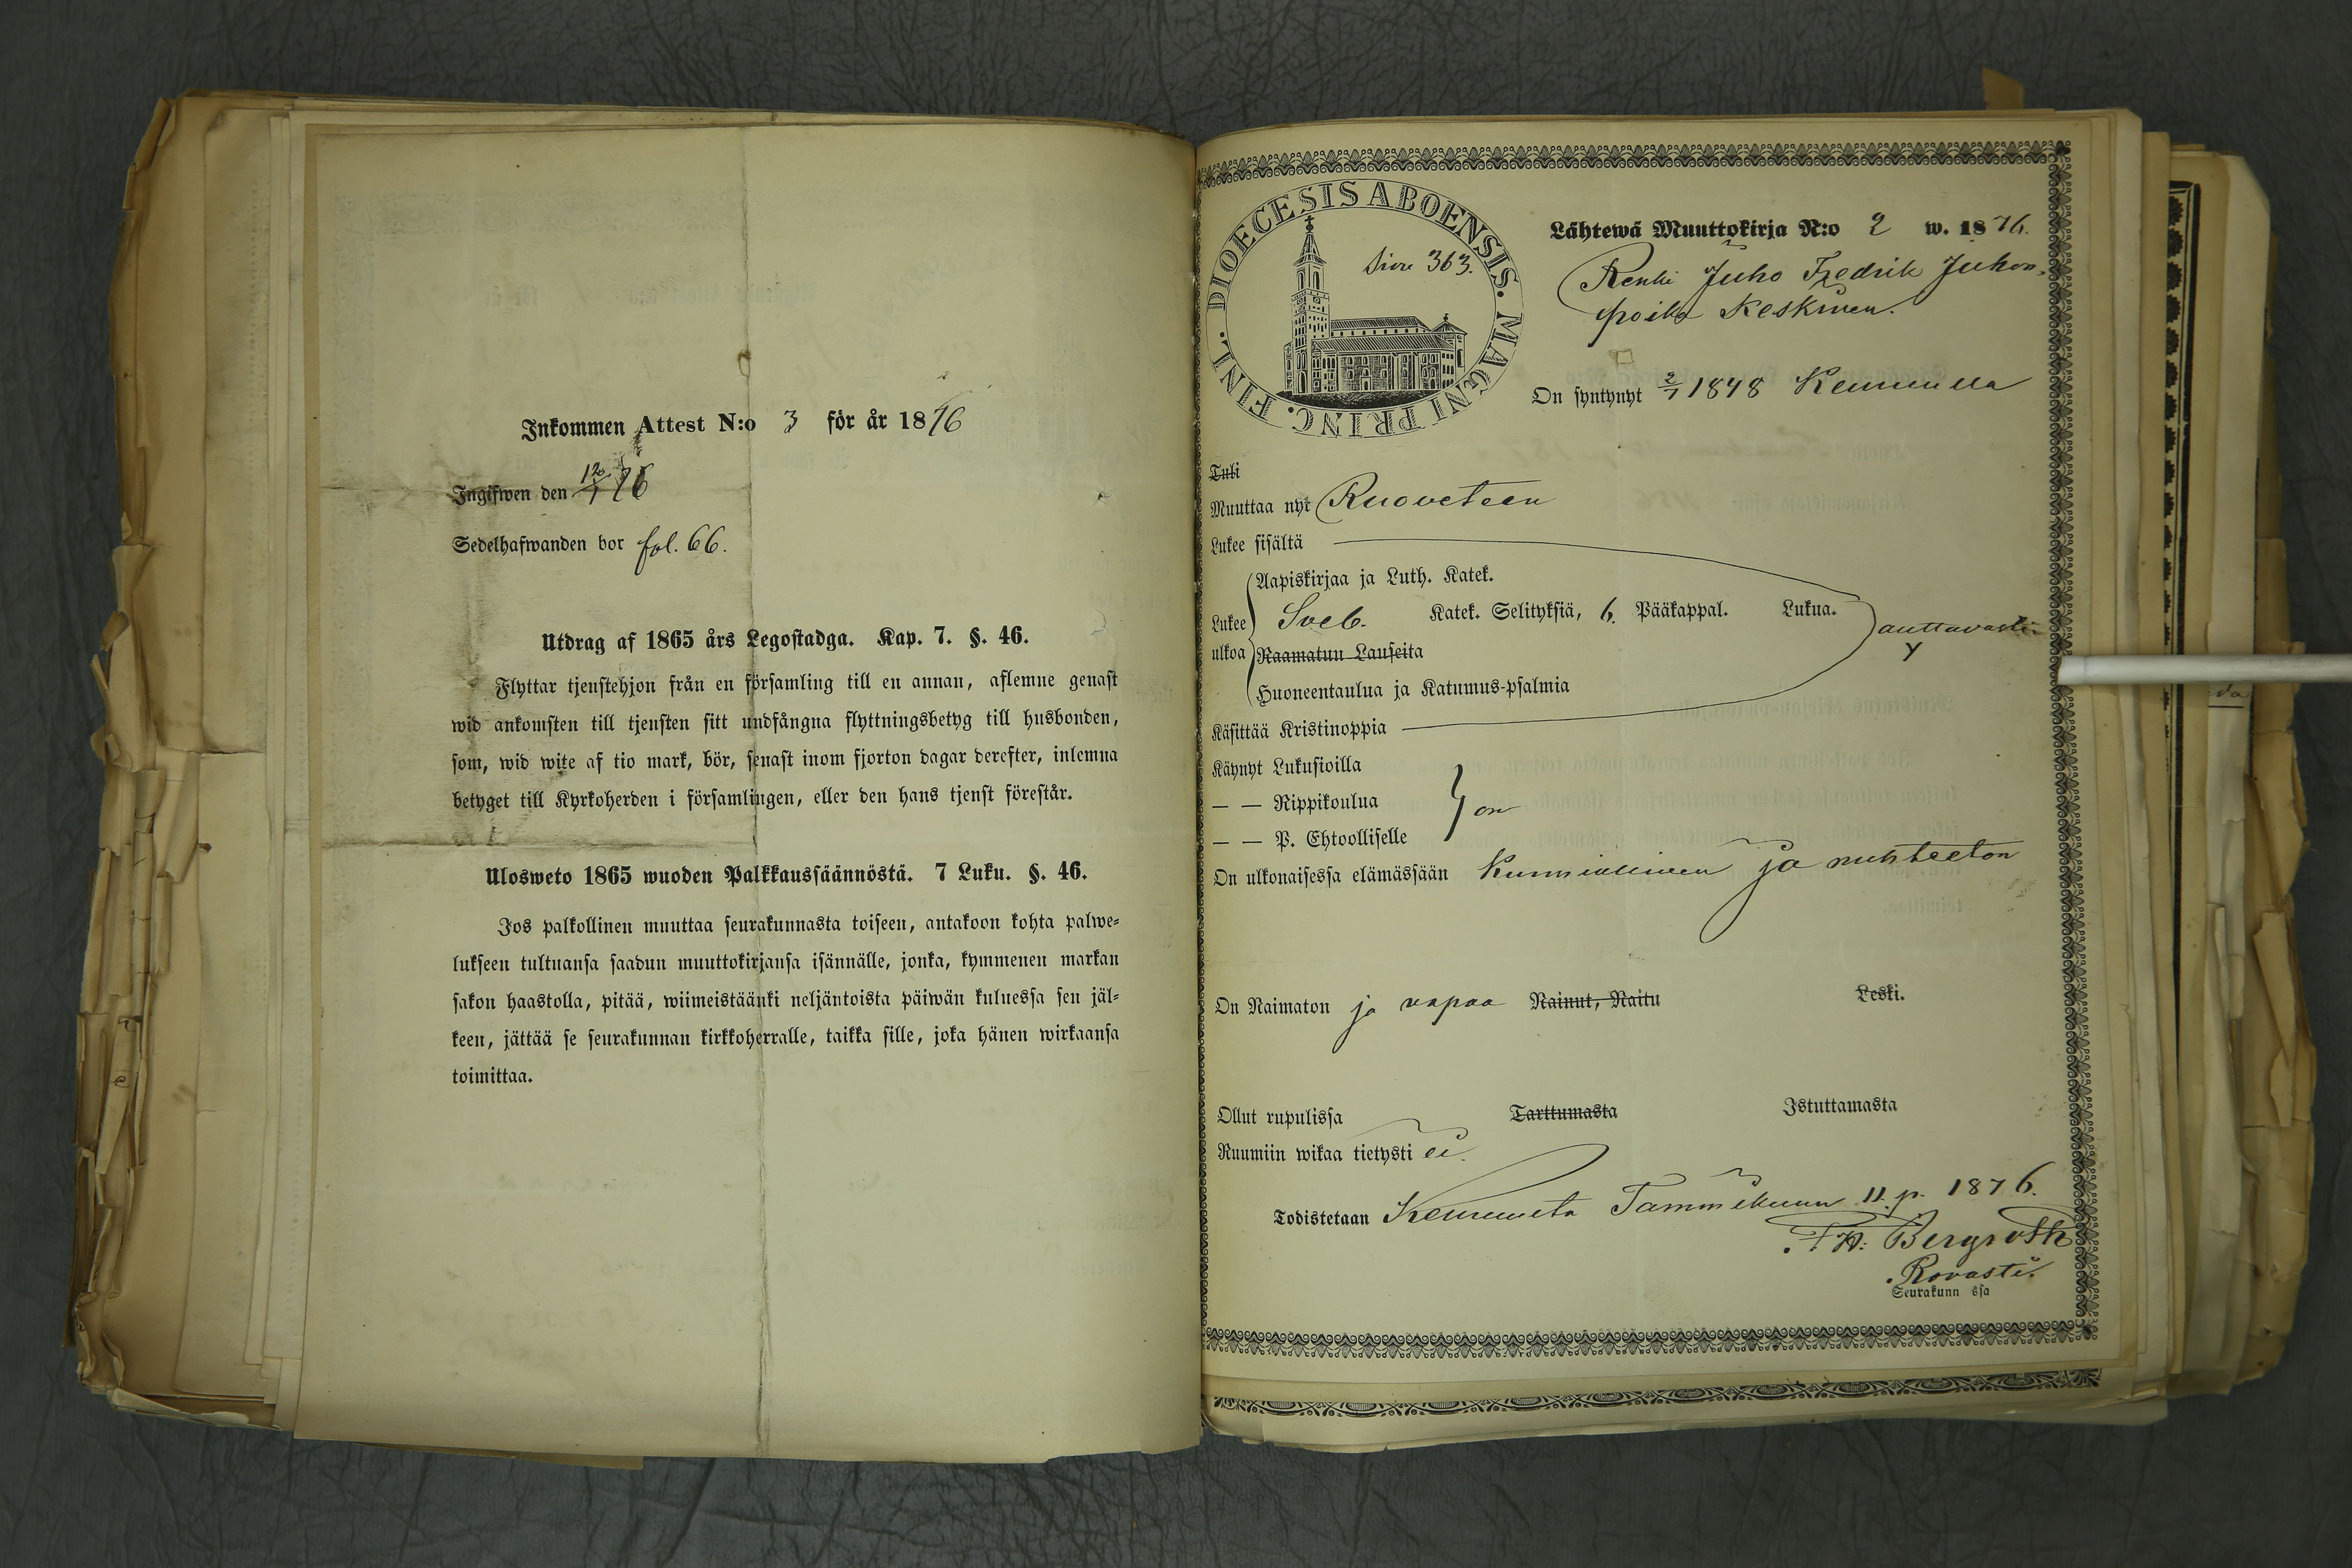 Inkommen Attest N:o 3 för år 1876
Ingifwen den 12/1 76
Sedelhafwanden bor fol. 66.
Utdrag af 1865 års Legostadga. Kap. 7. §. 46.
Flyttar tjenstehjon från en församling till en annan, aflemne genast
wid ankomsten till tjensten sitt undfångna flyttningsbetyg till husbonden,
som, wid wite af tio mark, bör, senast inom fjorton dagar derefter, inlemna
betyget till Kyrkoherden i församlingen, eller den hans tjenst förestår.
Ulosweto 1865 wuoden Palkkaussäännöstä. 7 Luku. §. 46.
Jos palkollinen muuttaa seurakunnasta toiseen, antakoon kohta palwe-
lukseen tultuansa saadun muuttokirjansa isännälle, jonka, kymmenen markan
sakon haastolla, pitää, wiimeistäänki neljäntoista päiwän kuluessa sen jäl-
keen, jättää se seurakunnan kirkkoherralle, taikka sille, joka hänen wirkaansa
toimittaa.
DIOECESIS ABOENSIS. MAGNI PRINC. FINL.
Sivu 363.
Lähtewä Muuttokirja N:o 2 w. 1876.
Renki Juho Fredrik Juhon-
poika Keskinen.
On syntynyt 2/7 1848 Keuruulla
Tuli
Muuttaa nyt Ruoveteen
Lukee sisältä
Aapiskirjaa ja Luth. Katek.
Lukee Sveb. Katek. Selityksiä, 6. Pääkappal. Lukua. auttavasti
ulkoa Raamatun Lauseita
Huoneentaulua ja Katumus-psalmia
Käsittää Kristinoppia
Käynyt Lukusioilla
— — Rippikoulua on
— — P. Ehtoolliselle
On ulkonaisessa elämässään Kunniallinen ja nuhteeton
On Naimaton ja vapaa Nainut, Naitu Leski.
Ollut rupulissa Tarttumasta Istuttamasta
Ruumiin wikaa tietysti ei.
Todistetaan Keuruulta Tammikuun 11. p. 1876.
Fr. Bergroth
Rovasti.
Seurakunn ssa